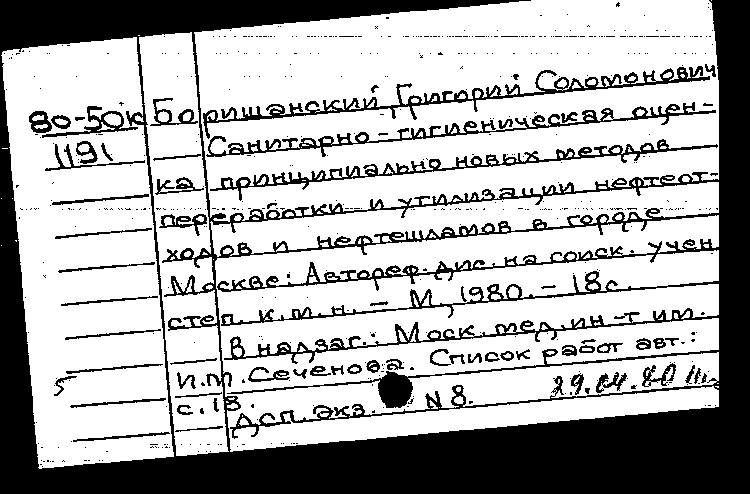 80-50к Боришанский, Григорий Соломонович
1191 Санитарно-гигиеническая оцен-
ка принципиально новых методов
переработки и утилизации нефтеот-
ходов и нефтешламов в городе
Москве: Автореф. дис. на соиск. учен.
степ. к.м.н. - М., 1980. - 18с.
В надзаг.: Моск. мед. ин-т им.
И.М. Сеченова. Список работ авт.:
5 с.18.
Дсп. экз. N 8. 29.04.80